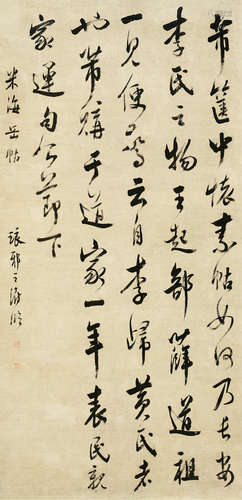 帋筐中懷素帖如何乃長安
李氏之物王起部薛道祖
一見便驚云自李歸黃氏者
也芾購于道家一年表民親
家運句公節下
米海岳帖
琅邪王澍臨